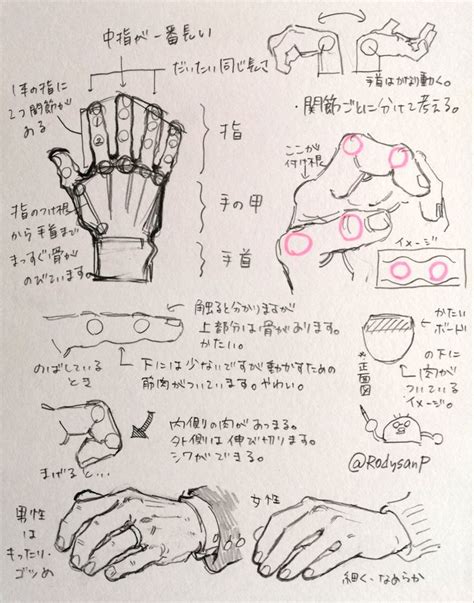 中指が一番長い
だいたい同じ長さ
1本の指に
2つ関節が
ある
手首はかなり動く。
・関節ごとに分けて考える。
指
手の甲
手首
ここが
付け根
指のつけ根
から手首まで
まっすぐ骨が
のびています。
イメージ
触ると分かりますが
上部分は骨があります。
かたい。
のばしている
とき
下には少ないですが動かすための
筋肉がついています。やわい。
かたい
ボード
の下に
肉が
ついている
イメージ。
*正面図
内側の肉があつまる。
外側は伸び切ります。
シワができる。
まげると…
@RodysanP
男性
は
もったり・
ゴツめ
女性
細く・なめらか